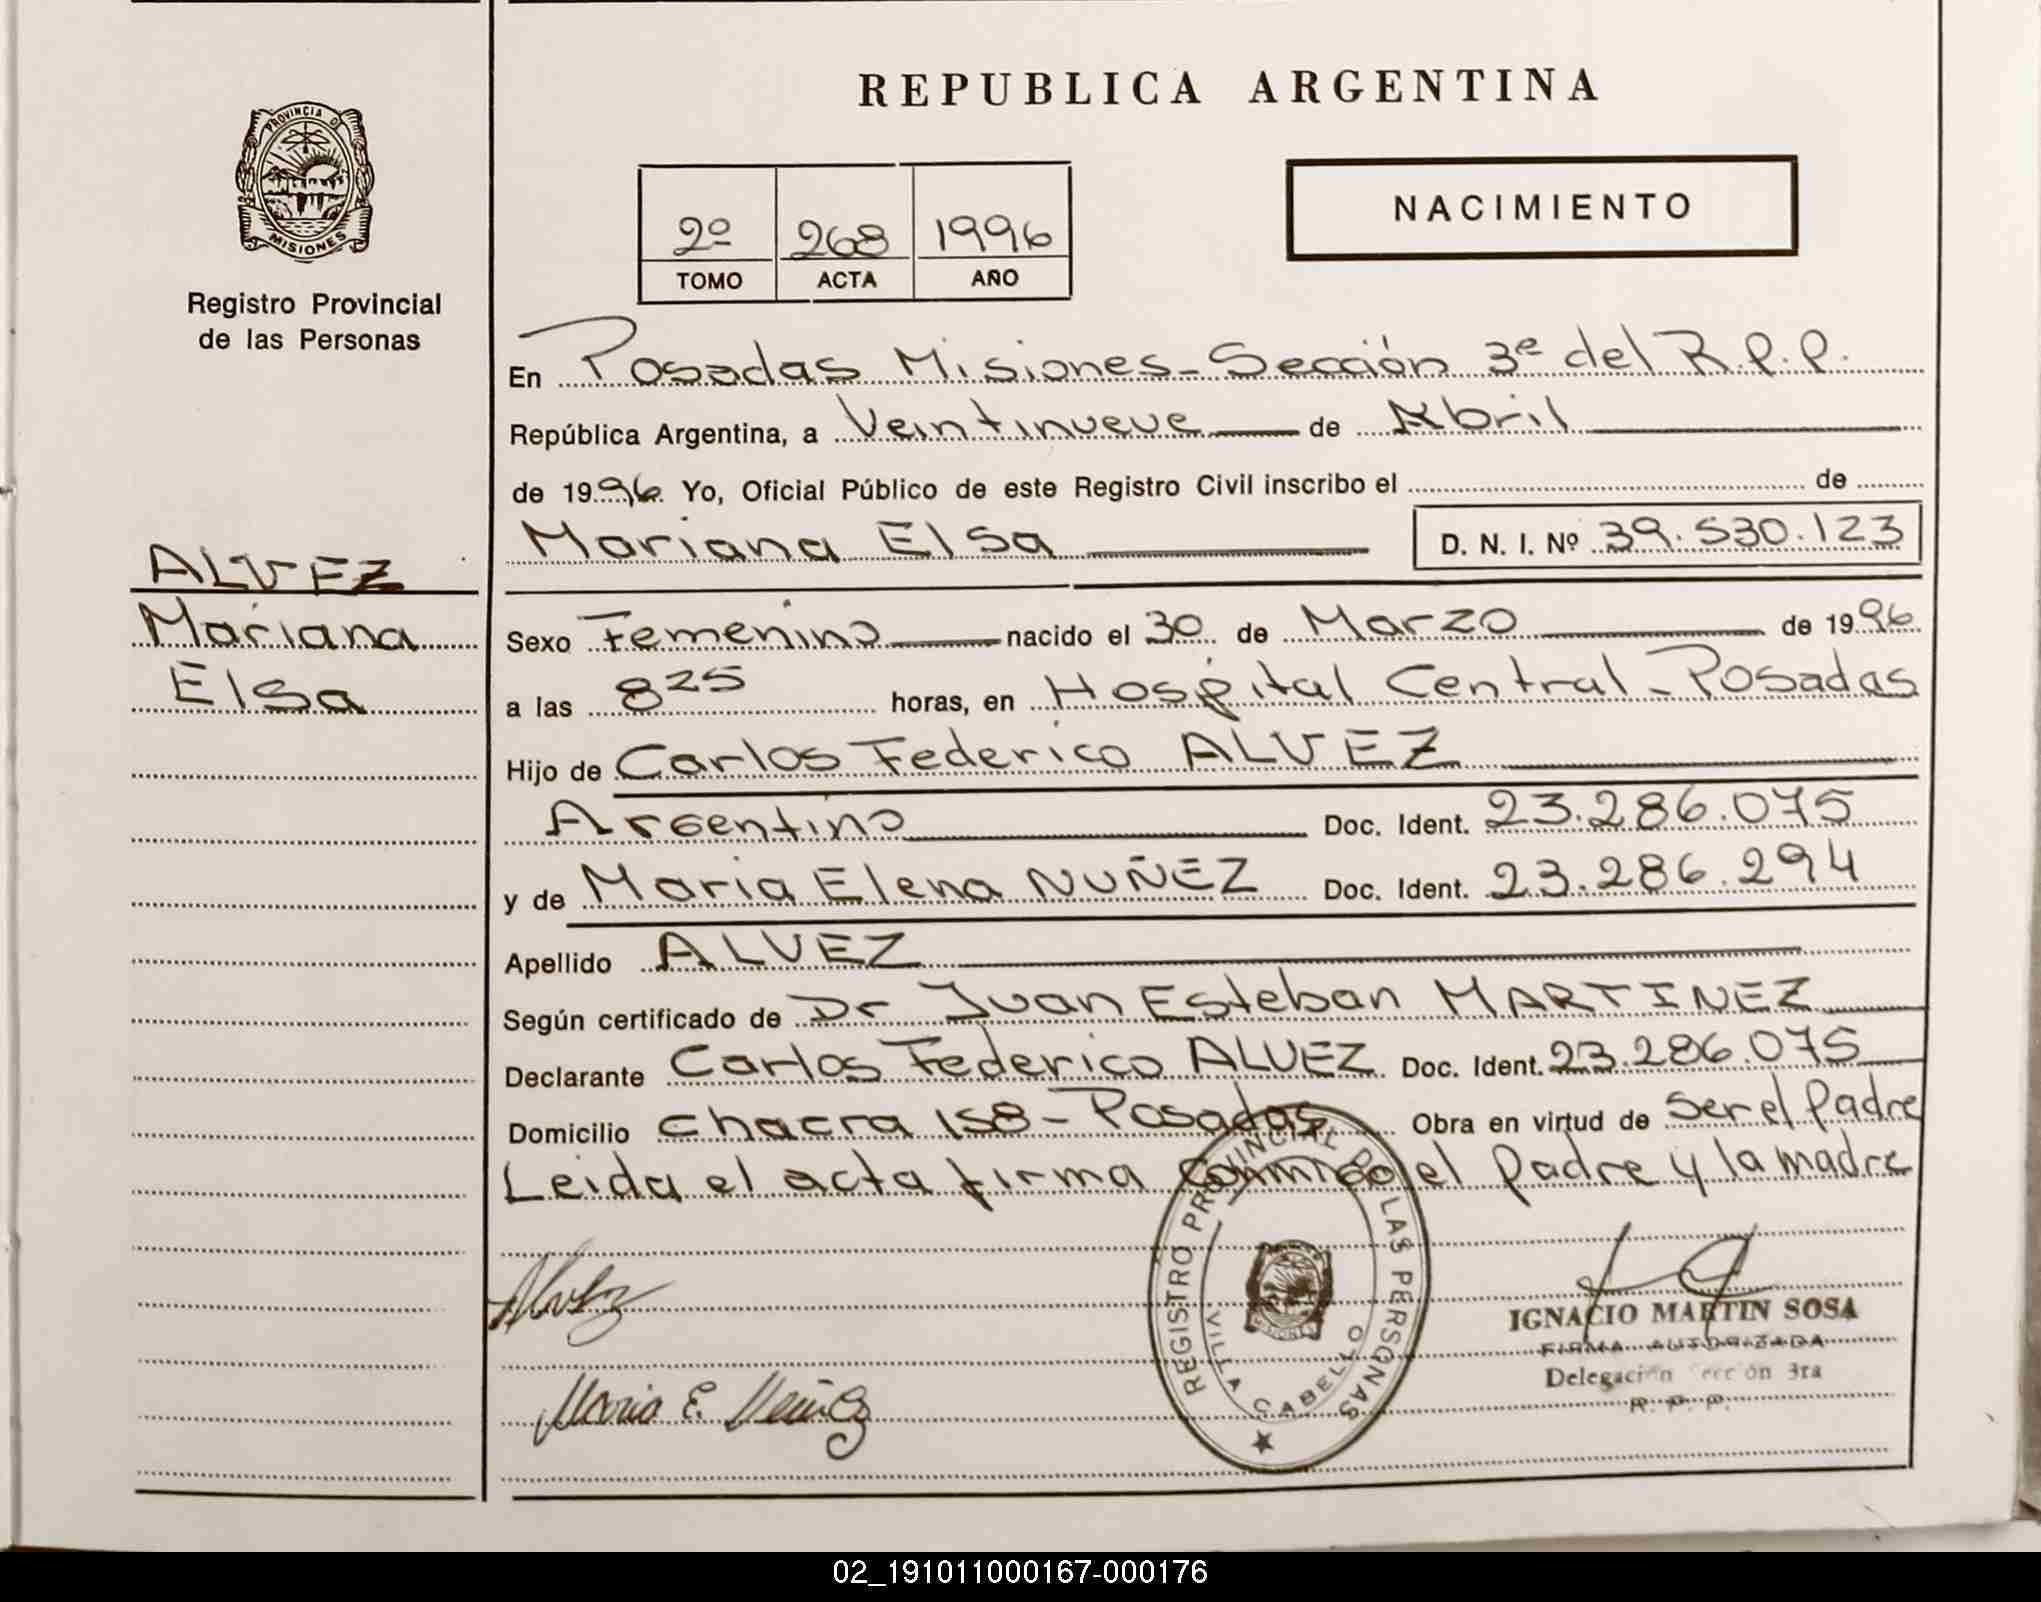 PROVINCIA DE
MISIONES
Registro Provincial
de las Personas
ALVEZ
Mariana
Elsa
REPUBLICA ARGENTINA
NACIMIENTO
2º 268 1996
TOMO ACTA AÑO
En Posadas Misiones - Sección 3ª del R.P.P.
República Argentina, a Veintinueve de Abril
de 1996. Yo, Oficial Público de este Registro Civil inscribo el de
Mariana Elsa D. N. I. Nº 39.530.123
Sexo Femenino nacido el 30 de Marzo de 1996
a las 8 25 horas, en Hospital Central - Posadas
Hijo de Carlos Federico ALVEZ
Argentino Doc. Ident. 23.286.075
y de Maria Elena NUÑEZ Doc. Ident. 23.286.294
Apellido ALVEZ
Según certificado de Dr Juan Esteban MARTINEZ
Declarante Carlos Federico ALVEZ Doc. Ident. 23.286.075
Domicilio chacra 158 - Posadas Obra en virtud de Ser el Padre
Leida el acta firma conmigo el padre y la madre
REGISTRO PROVINCIAL DE LAS PERSONAS
VILLA CABELLO
Alvez
Maria E. Nuñez
IGNACIO MARTIN SOSA
FIRMA AUTORIZADA
Delegación Sección 3ra
R. P. P.
02_191011000167-000176